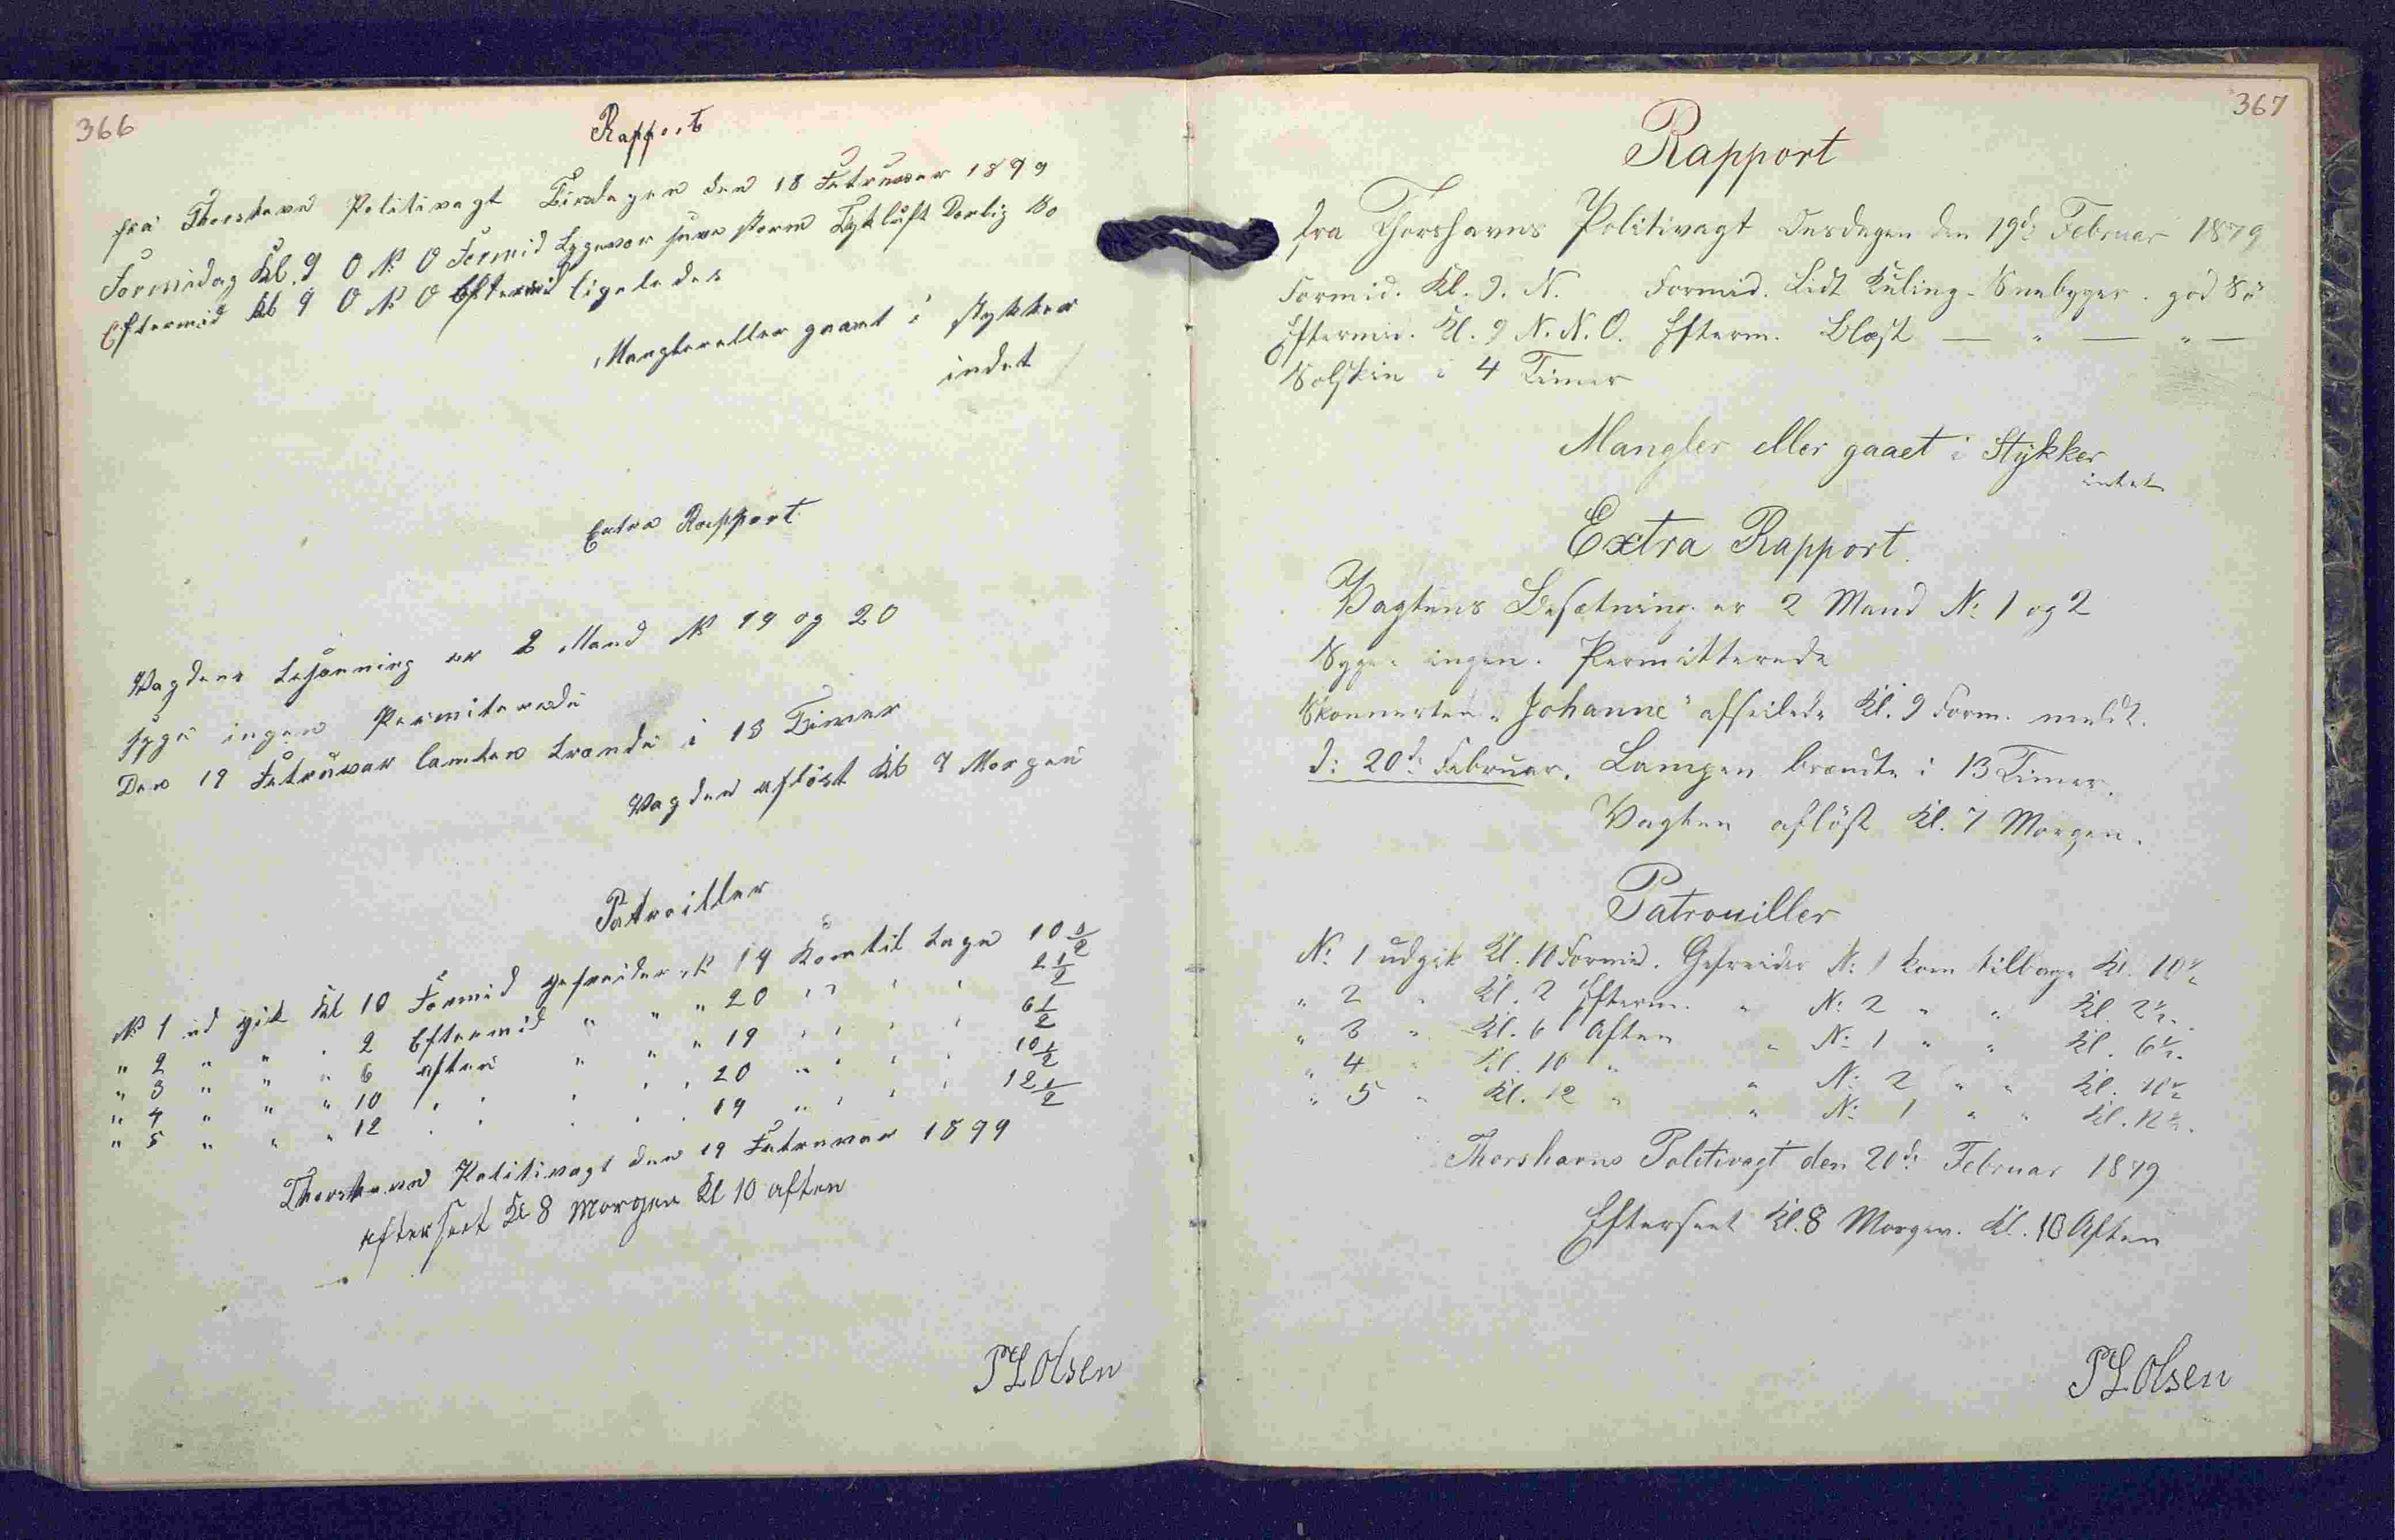 366
Rapport
fra Thorshavns Politivagt Tirsdagen den 18 Februar 1879
Formidag Kl. 9 O N O Formid Byger Storm Tykluft Dorlig So
Eftermid Kl 9 O N O Eftermid ligeledes
Mangler eller gaaet i stykker
indet
Extra Rapport
Vagdens Besætning er 2 Mand No 19 og 20
syge ingen Permiterede
Den 19 Februar lamten brende i 13 Timer
Vagden afløst Kl 7 Morgen
Patroiller
No 1 ud gik Kl 10 Formid gefreider No 19 Kom til bage 10 1/2
" 2 " " " 2 Eftermid " " " 20 " " " 2 1/2
" 3 " " " 6 aften " " " 19 " " " 6 1/2
" 4 " " " 10 " " " " 20 " " " 10 1/2
" 5 " " " 12 " " " " 19 " " " 12 1/2
Thorshavn Politivagt den 19 Februar 1879
efterseet Kl 8 Morgen Kl 10 aften
PL Olsen
367
Rapport
fra Thorshavns Politivagt Onsdagen den 19de Februar 1879
Formid. Kl. 9. N. Formid. Lidt Kuling - Sneebyger . god Sö
Eftermid. Kl. 9 N. N. O. Efterm. Blæst — " — " —
Solskin i 4 Timer
Mangler eller gaaet i Stykker
intet
Extra Rapport.
Vagtens Besætning er 2 Mand No: 1 og 2
Syge: ingen. Permitterede
Skonnerten „Johanne" afseilede Kl. 9 Form. meldt.
d: 20de Februar. Lampen brændte i 13 Timer.
Vagten aflöst Kl. 7 Morgen.
Patrouiller
No: 1 udgik Kl. 10 Formid. Gefreider No: 1 kom tilbage Kl. 10½
" 2 " Kl. 2 Efterm. " No: 2 " " Kl. 2½.
" 3 " Kl. 6 Aften " No: 1 " " Kl. 6½.
" 4 " Kl. 10 " " No: 2 " " Kl. 10½
" 5 " Kl. 12 " " No: 1 " " Kl. 12½.
Thorshavns Politivagt den 20de Februar 1879
Efterseet Kl. 8 Morgen. Kl. 10 Aften
PL Olsen